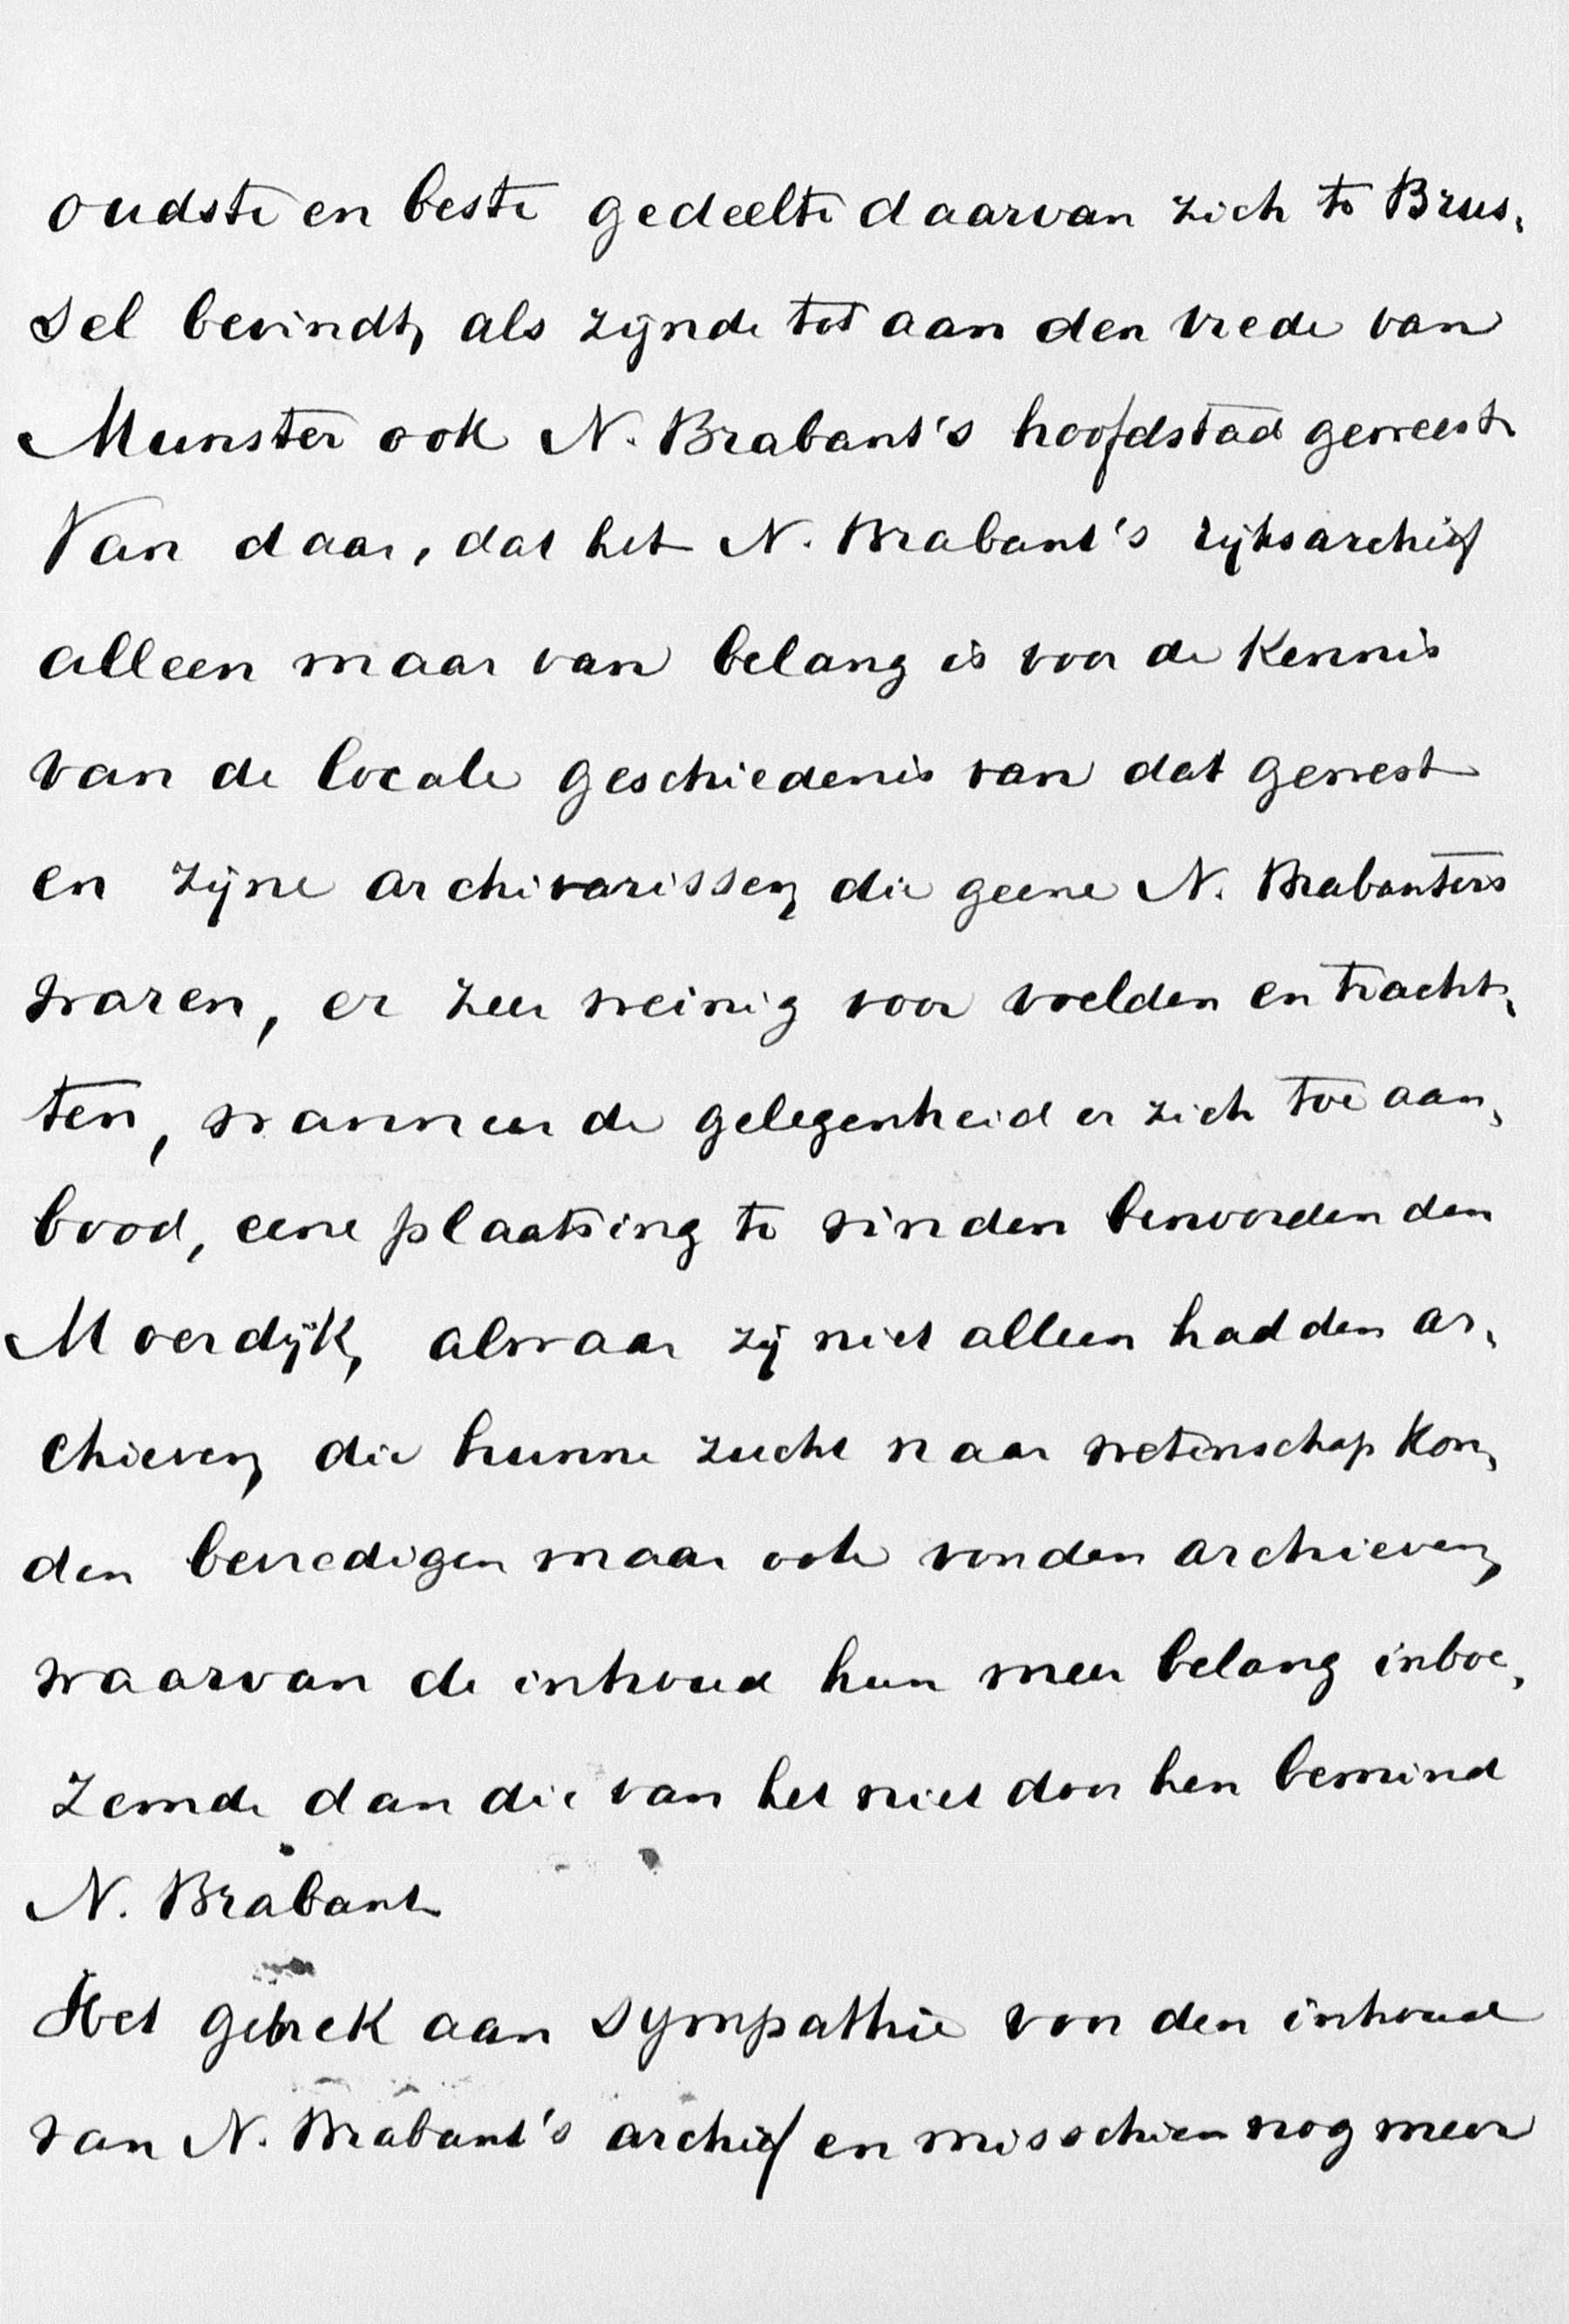 oudste en beste gedeelte daarvan zich te Brus,
sel bevindt, als zijnde tot aan den vrede van
Munster ook N. Brabant's hoofdstad geweest
Van daar, dat het N. Brabant's rijksarchief
alleen maar van belang is voor de kennis
van de locale geschiedenis van dat gewest
en zijne archivarissen, die geene N. Brabanters
waren, er zeer weinig voor voelden en tracht,
ten, wanneer de gelegenheid er zich toe aan,
bood, eene plaatsing te vinden benoorden den
Moerdijk, alwaar zij niet alleen hadden ar,
chieven, die hunne zucht naar wetenschap kon,
den bevredigen maar ook vonden archieven,
waarvan de inhoud hun meer belang inboe,
zemde dan die van het niet door hen bemind
N. Brabant
Het gebrek aan sympathie voor den inhoud
van N. Brabant's archief en misschien nog meer